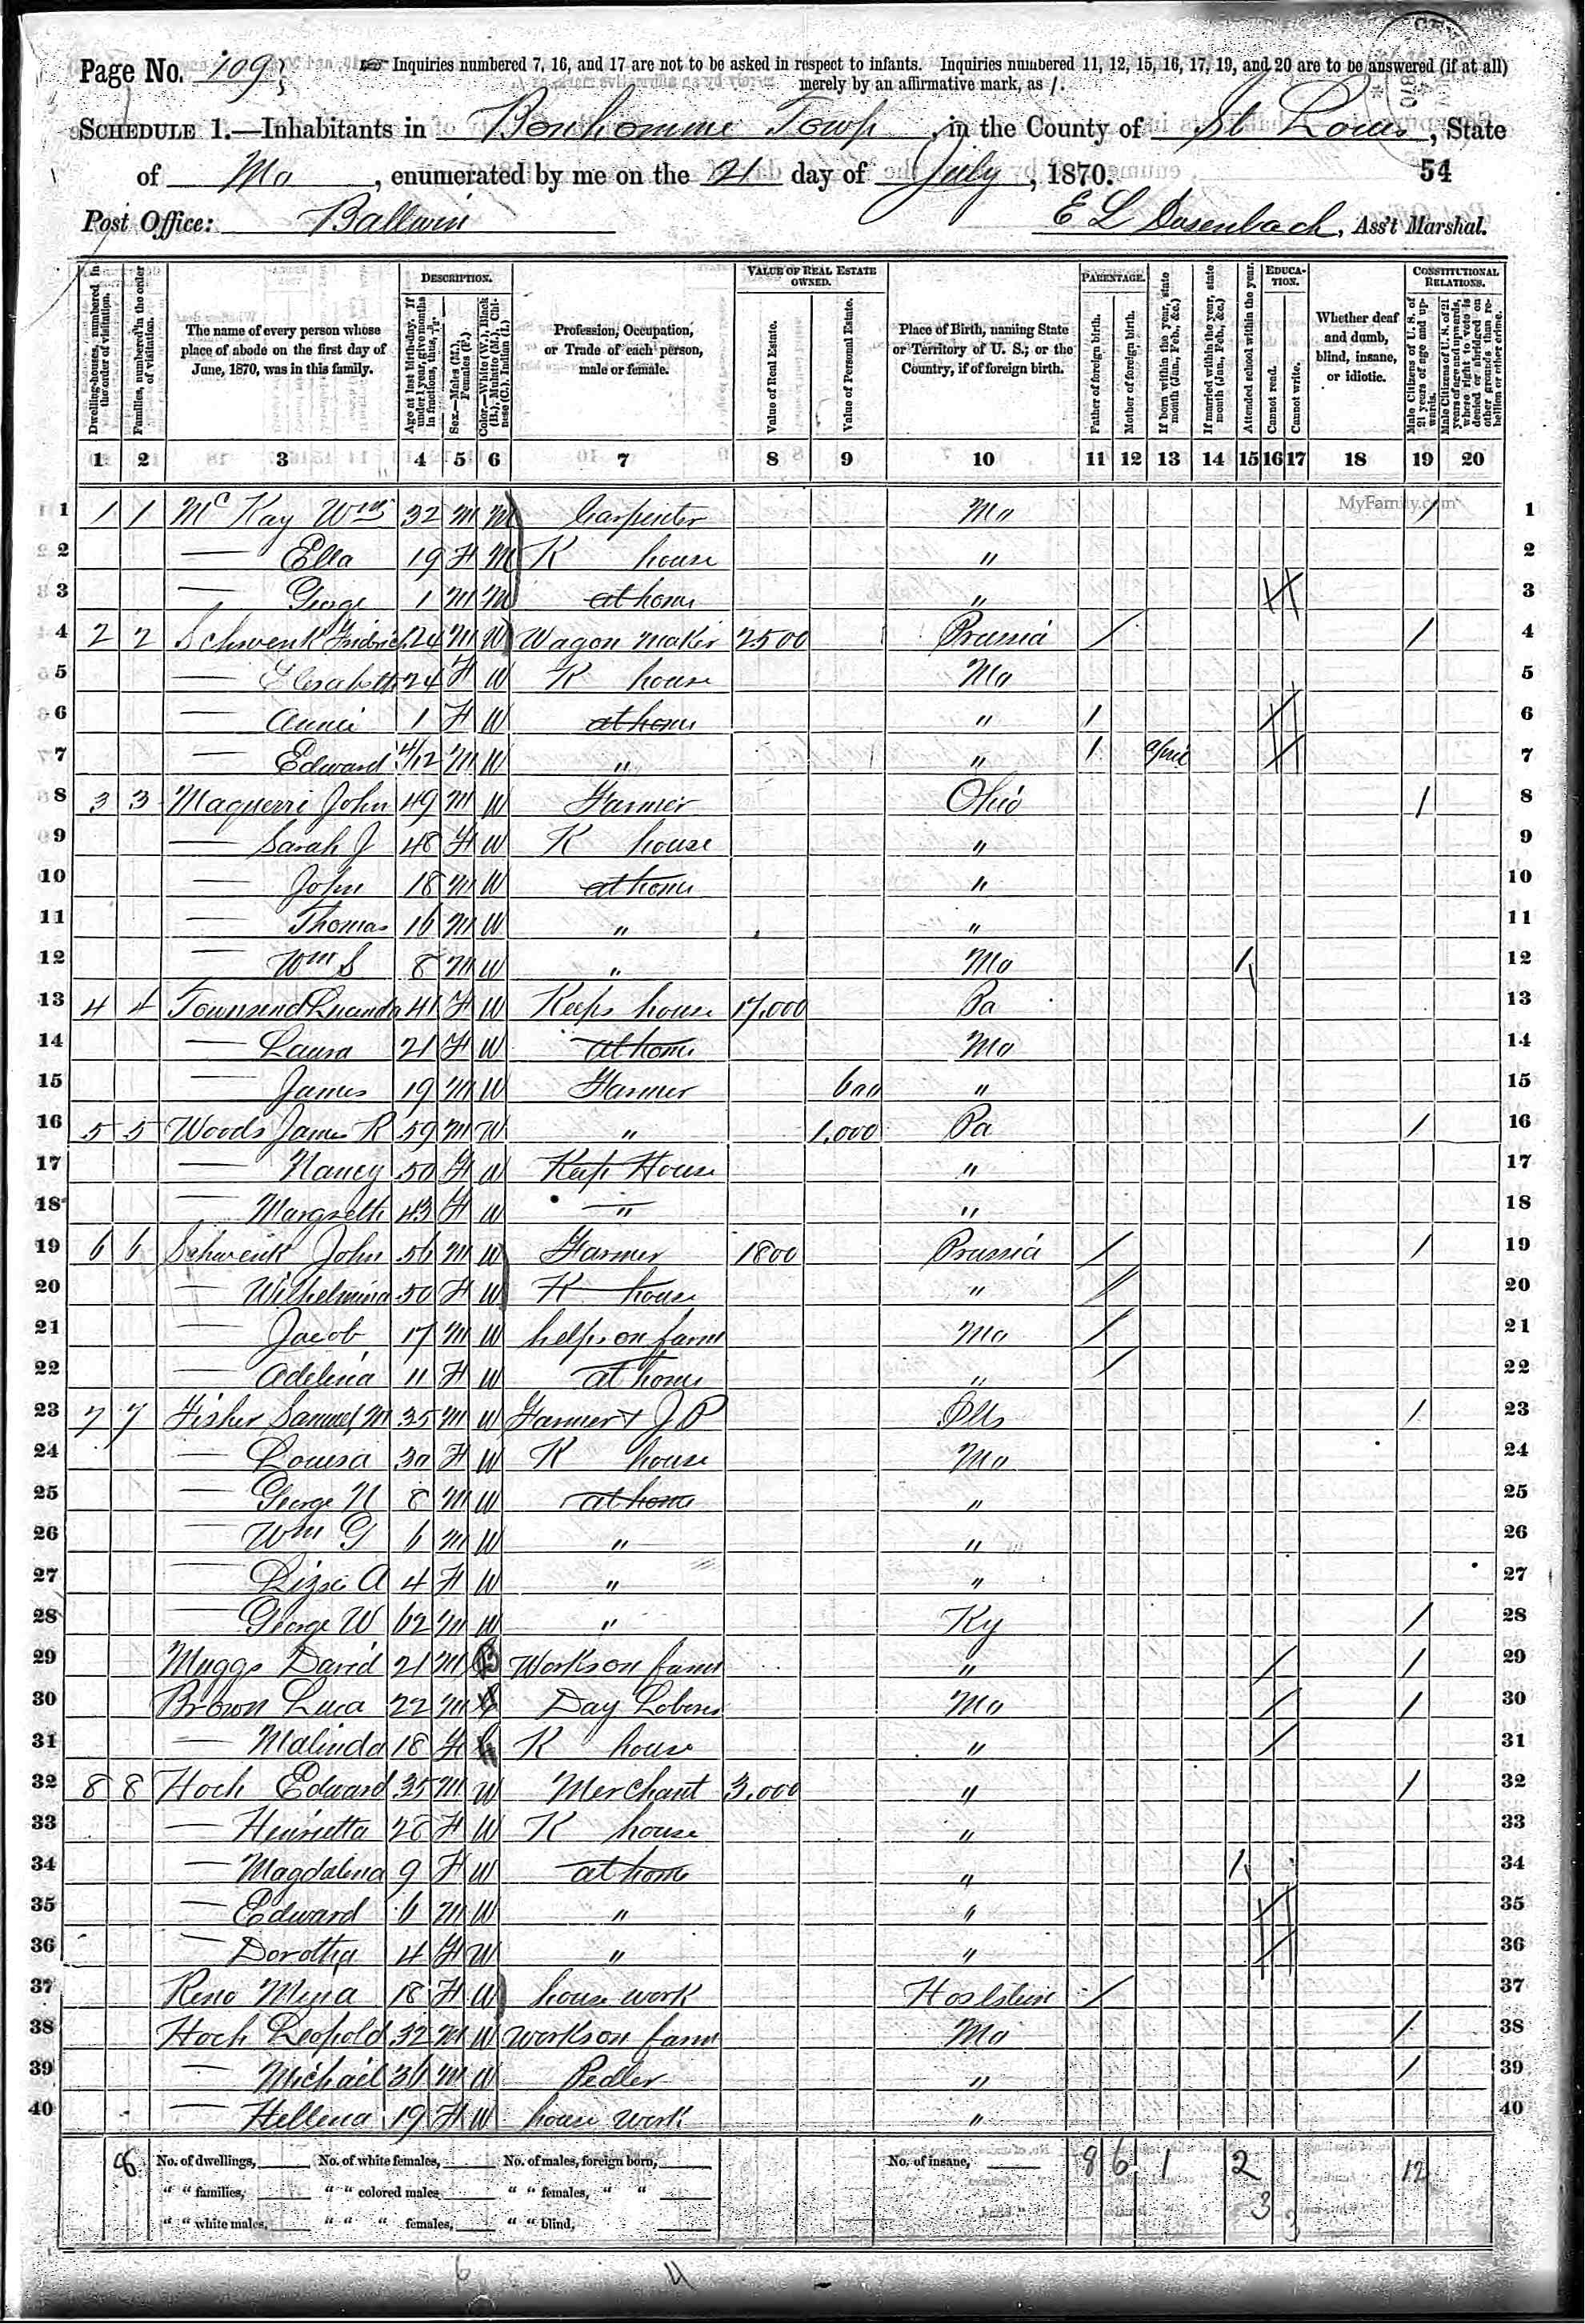 Page No. 109
Inquiries numbered 7, 16, and 17 are not to be asked in respect to infants. Inquiries numbered 11, 12, 15, 16, 17, 19, and 20 are to be answered (if at all)
merely by an affirmative mark, as /.
SCHEDULE 1.—Inhabitants in Bonhomme Towp, in the County of St Louis, State
of Mo, enumerated by me on the 21 day of July, 1870. 54
Post Office: Ballwin E L Dosenbach, Ass't Marshal.
Dwelling-houses, numbered in the order of visitation.
Families, numbered in the order of visitation.
The name of every person whose place of abode on the first day of June, 1870, was in this family.
DESCRIPTION.
Age at last birth-day. If under 1 year, give months in fractions, thus, 3/12.
Sex.—Males (M.), Females (F.)
Color.—White (W.), Black (B.), Mulatto (M.), Chinese (C.), Indian (I.)
Profession, Occupation, or Trade of each person, male or female.
VALUE OF REAL ESTATE OWNED.
Value of Real Estate.
Value of Personal Estate.
Place of Birth, naming State or Territory of U. S.; or the Country, if of foreign birth.
PARENTAGE.
Father of foreign birth.
Mother of foreign birth.
If born within the year, state month (Jan., Feb., &c.)
If married within the year, state month (Jan., Feb., &c.)
Attended school within the year.
EDUCATION.
Cannot read.
Cannot write.
Whether deaf and dumb, blind, insane, or idiotic.
CONSTITUTIONAL RELATIONS.
Male Citizens of U. S. of 21 years of age and upwards.
Male Citizens of U. S. of 21 years of age and upwards, where right to vote is denied or abridged on other grounds than rebellion or other crime.
1 2 3 4 5 6 7 8 9 10 11 12 13 14 15 16 17 18 19 20
MyFamily.com
1 1 1 Mc Kay Wm 32 M M Carpenter Mo / 1
2 — Ella 19 F M K house " 2
3 — George 1 M M at home " 3
4 2 2 Schwenk Fridrich 24 M W Wagon Maker 2500 Prussia / / 4
5 — Elisabeth 24 F W K house Mo 5
6 — Annie 1 F W at home " / 6
7 — Edward 4/12 M W " " / April 7
8 3 3 Maquerri John 49 M W Farmer Ohio / 8
9 — Sarah J 48 F W K house " 9
10 — John 18 M W at home " 10
11 — Thomas 16 M W " " 11
12 — Wm S 8 M W " Mo / 12
13 4 4 Townsend Lucinda 41 F W Keeps house 17,000 Pa 13
14 — Laura 21 F W at home Mo 14
15 — James 19 M W Farmer 600 " 15
16 5 5 Woods James R 59 M W " 1,000 Pa / 16
17 — Nancy 50 F W Keep House " 17
18 — Margreth 43 F W " " 18
19 6 6 Schwenk John 56 M W Farmer 1800 Prussia / / 19
20 — Wilhelmina 50 F W K house " / 20
21 — Jacob 17 M W helps on farm Mo / 21
22 — Adelina 11 F W at home " / 22
23 7 7 Fisher Samuel M 35 M W Farmer & J P Ills / 23
24 — Louisa 30 F W K house Mo 24
25 — George N 8 M W at home " 25
26 — Wm G 6 M W " " 26
27 — Lizzi A 4 F W " " 27
28 — George W 62 M W " Ky / 28
29 Muggs David 21 M B Works on farm " / / 29
30 Brown Luca 22 M Day Laborer Mo / / 30
31 — Malinda 18 F K house " / 31
32 8 8 Hoch Edward 35 M W Merchant 3,000 " / 32
33 — Henrietta 28 F W K house " 33
34 — Magdalina 9 F W at home " / 34
35 — Edward 6 M W " " 35
36 — Dorothia 4 F W " " 36
37 Reno Mina 18 F W house work Hoslstein / 37
38 Hoch Leopold 32 M W works on farm Mo / 38
39 — Michael 36 M W Pedler " / 39
40 — Hellena 19 F W house work " 40
8 No. of dwellings, No. of white females, No. of males, foreign born, No. of insane, 8 6 1 2 12
" " families, " " colored males, " " females, " " 3
" " white males, " " " females, " " blind, 3
6 4